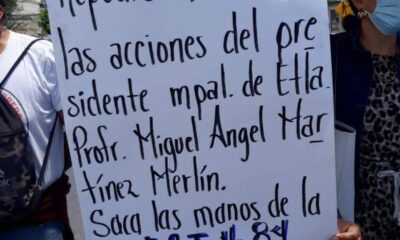 las acciones del pre
sidente mpal. de Etla.
Profr. Miguel Angel Mar
tínez Merlín.
Saca las manos de la